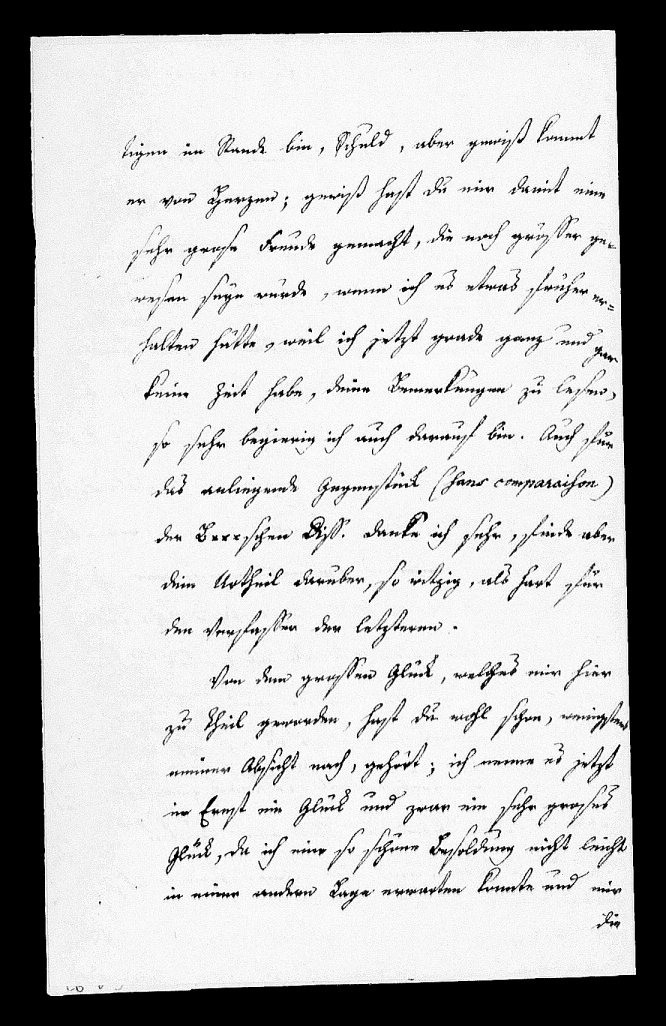 tigen im Stande bin, Schuld, aber gewiß kommt
er von Herzen; gewiß hast du mir damit eine
sehr grose Freude gemacht, die noch grösser ge-
wesen seyn würde, wenn ich es etwas früher er-
halten hätte, weil ich jetzt grade ganz und gar
keine Zeit habe, deine Bemerkungen zu lesen,
so sehr begierig ich auch darauf bin. Auch für
das anliegende Gegenstück (sans comparaison)
der schen Diss. danke ich sehr, finde aber
dein Urtheil darüber, so witzig, als hart für
den Verfasser der letzteren.
Von dem grossen Glück, welches mir hier
zu Theil geworden, hast du wohl schon, wenigstens
meiner Absicht nach, gehört; ich nenne es jetzt
im Ernst ein Glück und zwar ein sehr groses
Glück, da ich eine so schöne Besoldung nicht leicht
in einer andern Lage erwarten konnte und mir
die